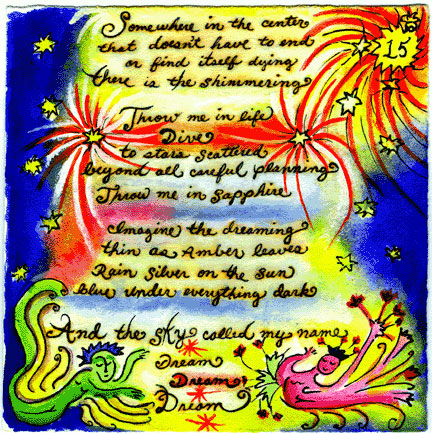 Somewhere in the center
that doesn't have to end
or find itself dying
there is the shimmering
15
Throw me in life
Dive
to stars scattered
beyond all careful planning
Throw me in Sapphire
Imagine the dreaming
thin as Amber leaves
Rain Silver on the Sun
blue under everything dark
And the Sky called my name
Dream
Dream
Dream